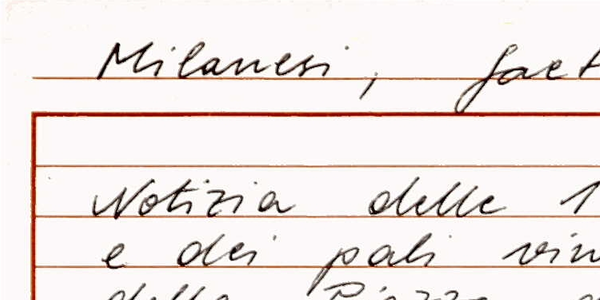 Milanesi, Gaet
Notizia delle 1
e dei pali vin
della Piazza